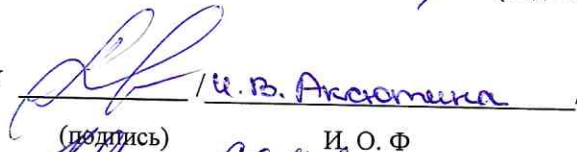 / И. В. Аксютина
(подпись) И. О. Ф